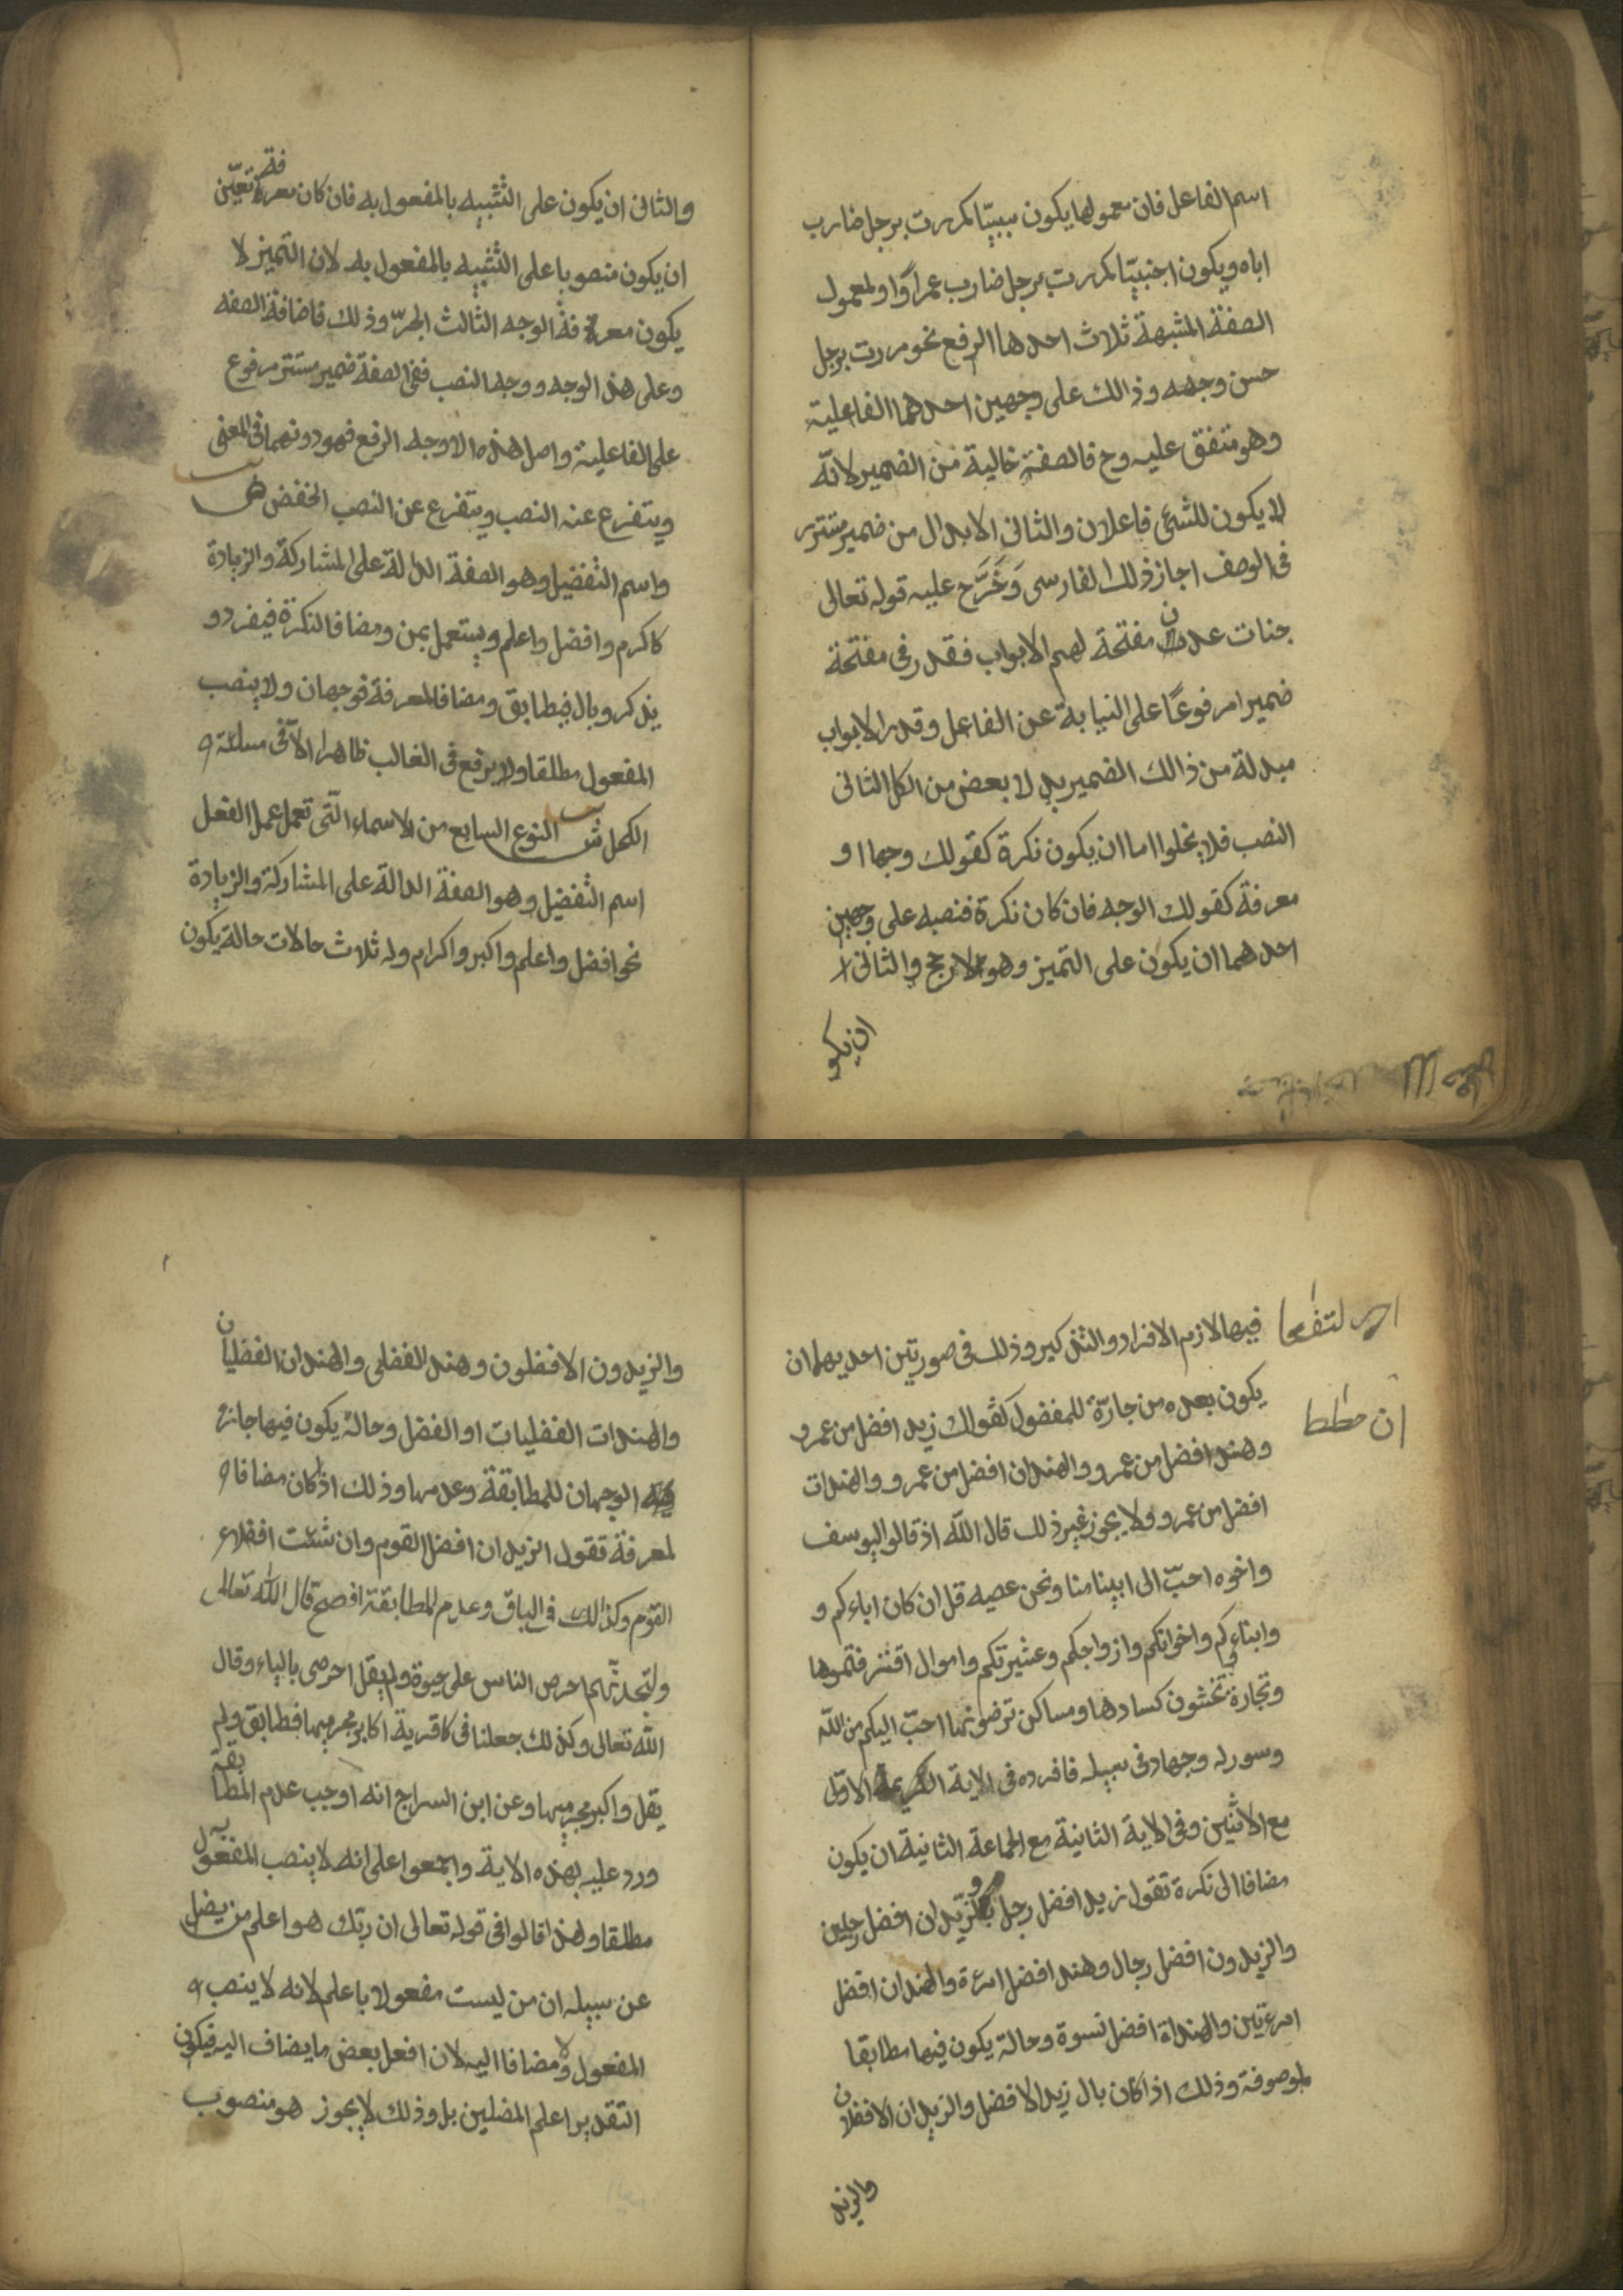 اسم الفاعل فان معمولها يكون سببيّا كمررت برجل ضارب
اباه ويكون اجنبيّا كمررت برجل ضارب عمراً ولمعمول
الصفة المشبهة ثلاث احدها الرفع نحو مررت برجل
حسن وجهه وذالك على وجهين احدهما الفاعلية
وهو متفق عليه وح فالصفة خالية من الضمير لانّه
لا يكون للشئ فاعلان والثانى الابدال من ضمير مستتر
فى الوصف اجاز ذلك الفارسى وَخَرَّج عليه قوله تعالى
جنات عدن مفتحة لهم الابواب فقدر فى مفتحة
ضميرا مرفوعًا على النيابة عن الفاعل وقدر الابواب
مبدلة من ذالك الضمير بدلا بعض من الكل الثانى
النصب فلا يخلوا اما ان يكون نكرة كقولك وجها او
معرفة كقولك الوجه فان كان نكرة فنصبه على وجهين
احدهما ان يكون على التميز وهو الارجح والثانى
ان يكو
والثانى ان يكون على التشبيه بالمفعول به فان كان معرفة تعيّن
ان يكون منصوبا على التشبيه بالمفعول به لان التميز لا
يكون معرفة الوجه الثالث الجرّ وذلك فاضافة الصفه
وعلى هذ الوجه ووجه النصب ففى الصفة ضمير مستتر مرفوع
على الفاعلية واصل هذه الاوجه الرفع فهو دونهما فى المعنى
ويتفرع عنه النصب ويتفرع عن النصب الخفض ص
واسم التفضيل وهو الصفة الدالة على المشاركة والزيادة
كاكرم وافضل واعلم ويستعمل بمن ومضافا لنكرة فيفرد و
يذكر وبال فيطابق ومضافا لمعرفة فوجهان ولا ينصب
المفعول مطلقا ولا يرفع فى الغالب ظاهرا الّا فى مسئلة
الكحل ش النوع السابع من الاسماء الّتى تعمل عمل الفعل
اسم التفضيل وهو الصفة الدالة على المشاركة والزيادة
نحو افضل واعلم واكبر واكرام وله ثلاث حالات حالة يكون
فيها لازم الافراد والتذكير وذلك فى صورتين احديهما ان
يكون بعده من جارّة للمفضول كقولك زيد افضل من عمرو
وهند افضل من عمرو والهندان افضل من عمرو والهندات
افضل من عمرو ولا يجوز غير ذلك قال اللّه اذ قالوا ليوسف
واخوه احبّ الى ابينا منا ونحن عصبه قل ان كان اباءكم و
وابناءكم واخوانكم وازواجكم وعشيرتكم واموال اقترفتموها
وتجارة تخشون كسادها ومساكن ترضونها احبّ اليكم من اللّه
وسوره وجهاد فى سبيله فافرده فى الاية الكريمة الاولى
مع الاثنين وفى الاية الثانية مع الجماعة الثانية ان يكون
مضافا الى نكرة تقول زيد افضل رجل والزيدان افضل رجلين
والزيدون افضل رجال وهند افضل امرءة والهندان افضل
امرءتين والهنداة افضل نسوة وحالة يكون فيها مطابقا
لموصوفة وذلك اذا كان بال زيد الافضل والزيدان الافضلان
والزيد
والزيدون الافضلون وهند الفضلى والهندان الفضليان
والهندات الفضليات او الفضل وحالة يكون فيها جائز
الوجهان للمطابقة وعدمها وذلك اذا كان مضافا
لمعرفة تقول الزيدان افضل القوم وان شئت افضلاء
القوم وكذالك فى الباقى وعدم المطابقة افصح قال اللّه تعالى
ولتجدنّهم احرص الناس على حيوة ولم يقل احرصى بالياء وقال
اللّه تعالى وكذلك جعلنا فى كا قرية اكابر مجرميها فطابق ولم
يقل واكبر مجرميها وعن ابن السراج انه اوجب عدم المطابقة
ورد عليه بهذه الاية واجمعوا على انه لا ينصب المفعول به
مطلقا ولهذا قالوا فى قوله تعالى ان ربّك هو اعلم من يضل
عن سبيله ان من ليست مفعولا باعلم لانه لا ينصب
المفعول ولا مضافا اليه لان افعل بعض ما يضاف اليه فيكون
التقدير اعلم المضلين بل وذلك لا يجوز هو منصوب